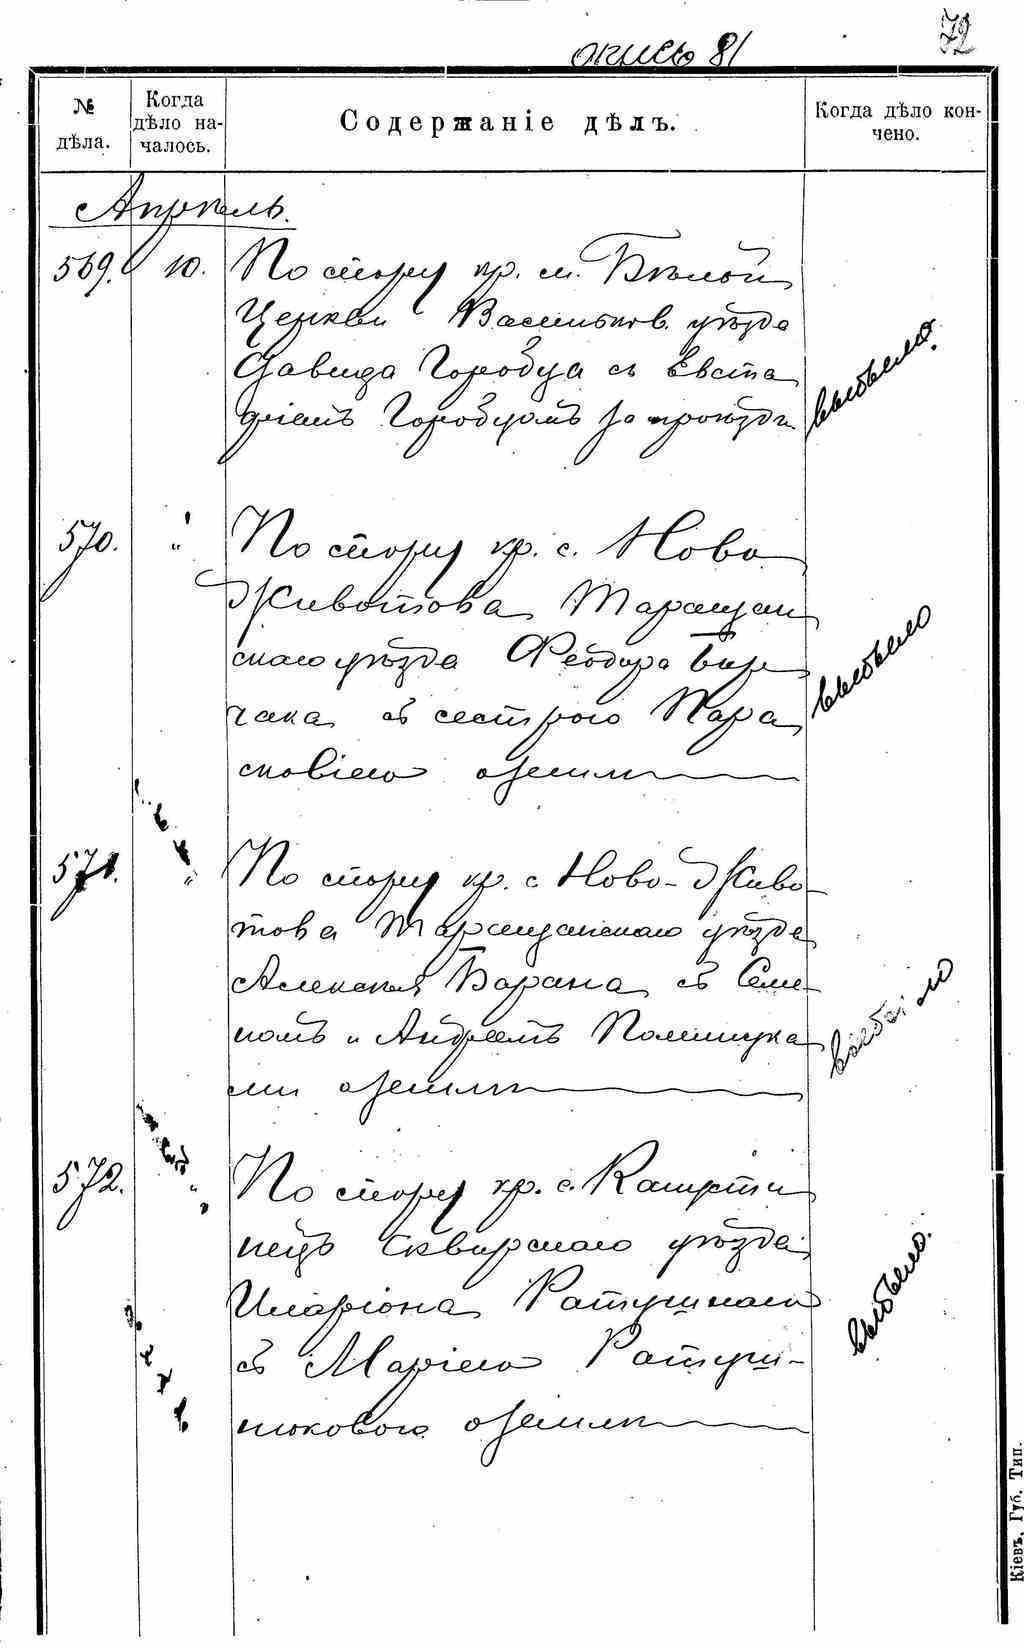 опись 81
72
№ дѣла.
Когда дѣло на-
чалось.
Содержаніе дѣлъ.
Когда дѣло кон-
чено.
Апрель.
569. 10. По спору кр. м. Бѣлой
Церкви Васильков. уѣзда
Давида Городца съ Евста
фіемъ Городцомъ за проѣздъ
выбыло.
570. " По спору кр. с. Ново
Животова Таращан
скаго уѣзда Феодора Бир
чака съ сестрою Пара
сковіею о землѣ
выбыло
571. " По спору кр. с Ново-Живо-
това Таращанскаго уѣзда
Алексея Барана съ Семе-
номъ и Андреемъ Полищука
ми о землѣ
выбыло
572. " По спору кр. с. Капусти
нецъ Сквирскаго уѣзда
Иларіона Ратушнаго
съ Маріею Ратуш-
нюковою о землѣ
выбыло.
Кіевъ, Губ. Тип.